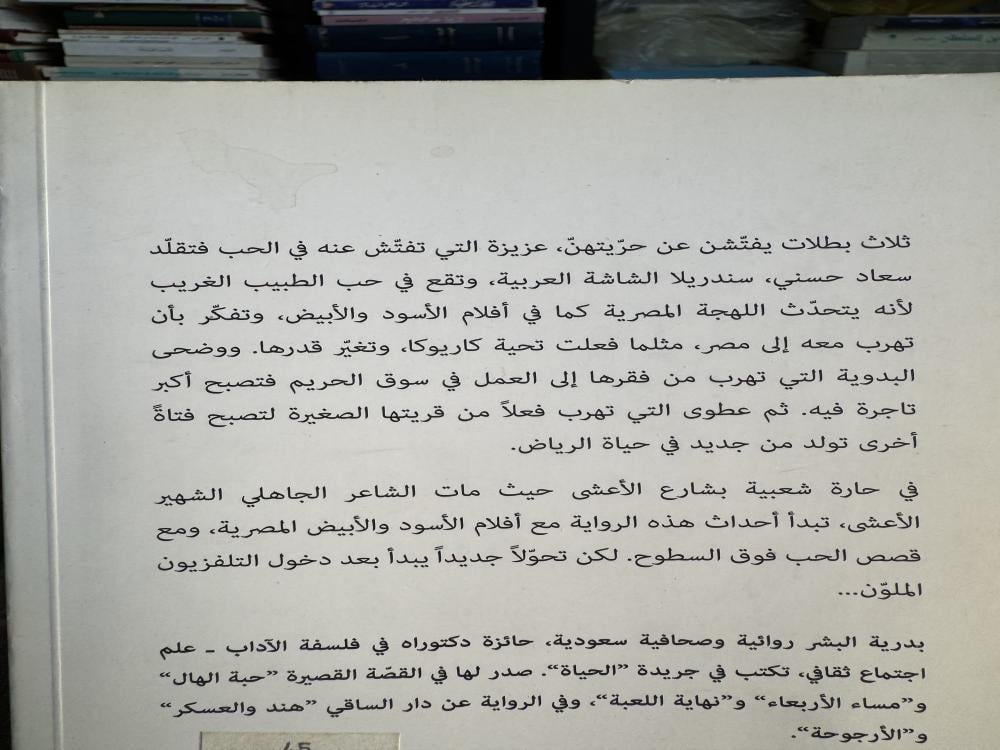 ثلاث بطلات يفتّشن عن حرّيتهنّ، عزيزة التي تفتّش عنه في الحب فتقلّد
سعاد حسني، سندريلا الشاشة العربية، وتقع في حب الطبيب الغريب
لأنه يتحدّث اللهجة المصرية كما في أفلام الأسود والأبيض، وتفكّر بأن
تهرب معه إلى مصر، مثلما فعلت تحية كاريوكا، وتغيّر قدرها. ووضحى
البدوية التي تهرب من فقرها إلى العمل في سوق الحريم فتصبح أكبر
تاجرة فيه. ثم عطوى التي تهرب فعلاً من قريتها الصغيرة لتصبح فتاةً
أخرى تولد من جديد في حياة الرياض.
في حارة شعبية بشارع الأعشى حيث مات الشاعر الجاهلي الشهير
الأعشى، تبدأ أحداث هذه الرواية مع أفلام الأسود والأبيض المصرية، ومع
قصص الحب فوق السطوح. لكن تحوّلاً جديداً يبدأ بعد دخول التلفزيون
الملوّن...
بدرية البشر روائية وصحافية سعودية، حائزة دكتوراه في فلسفة الآداب ـ علم
اجتماع ثقافي، تكتب في جريدة ”الحياة“. صدر لها في القصّة القصيرة ”حبة الهال“
و”مساء الأربعاء“ و”نهاية اللعبة“، وفي الرواية عن دار الساقي ”هند والعسكر“
و”الأرجوحة“.